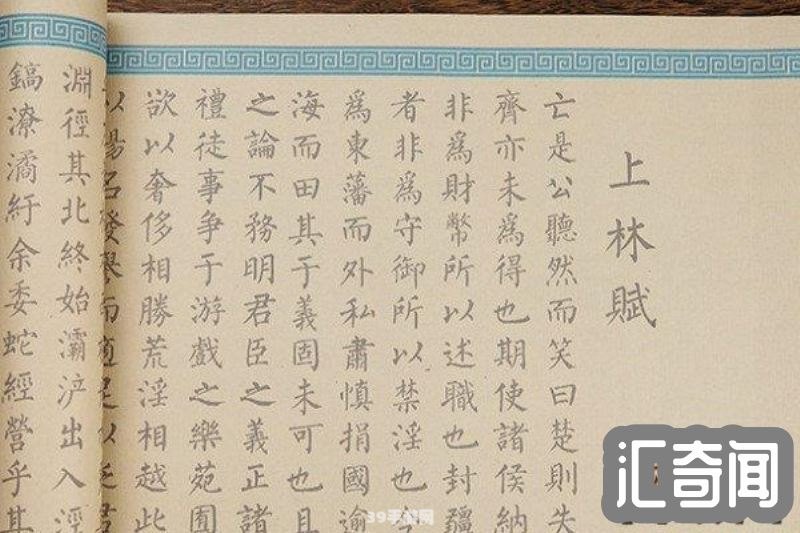 上林賦
亡是公聽然而笑曰楚則失
齊亦未爲得也期使諸侯納
非爲財幣所以述職也封疆
者非爲守御所以禁淫也
爲東藩而外私肅慎捐國逾
海而田其于義固未可也且
之論不務明君臣之義正諸
禮徒事争于游戲之樂苑囿
欲以奢侈相勝荒淫相越此
以揚名發譽而適足以
淵徑其北終始灞浐出入涇
鎬潦潏紆余委蛇經營乎其
汇奇闻